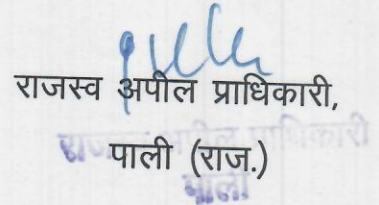 राजस्व अपील प्राधिकारी,
पाली (राज.)
राजस्व अपील प्राधिकारी
पाली